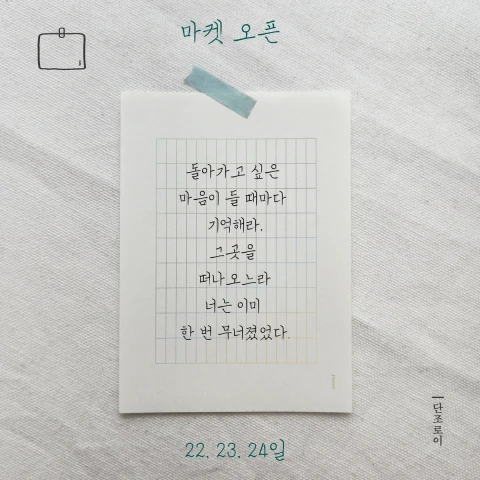 마켓 오픈
돌아가고 싶은
마음이 들 때마다
기억해라.
그곳을
떠나오느라
너는 이미
한 번 무너졌었다.
단조로이
22. 23. 24일